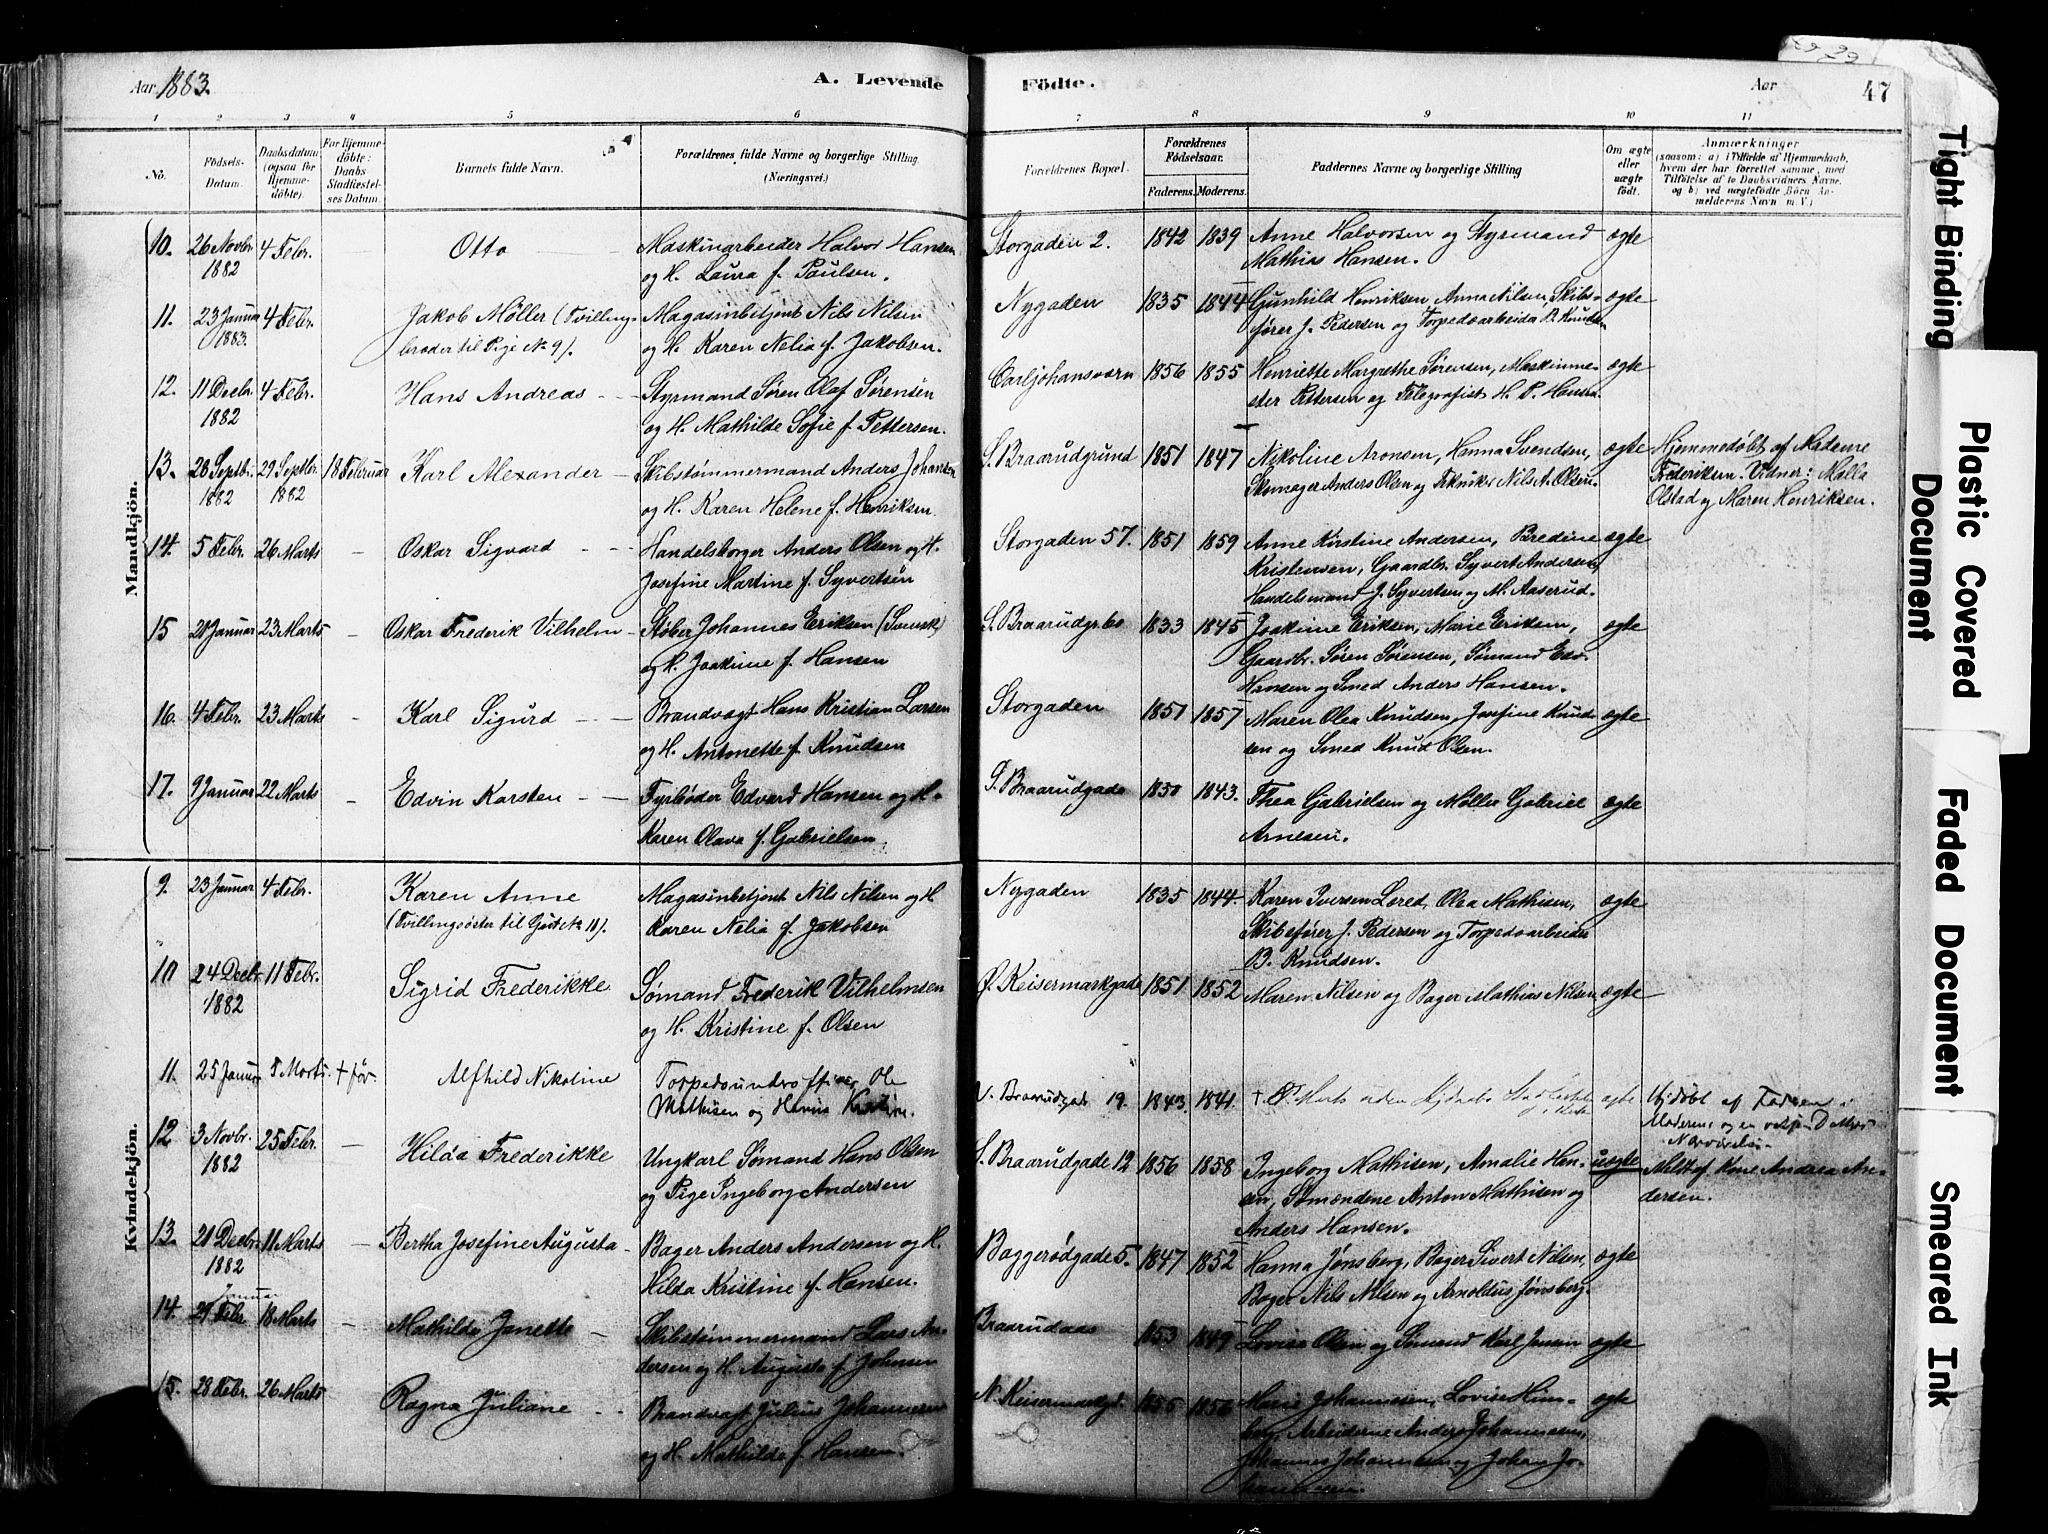 Aar 1883.
A. Levende
Födte.
Aar
47
1 2 3 4 5 6 7 8 9 10 11
No.
Födsels-
Datum.
Daabsdatum
(ogsaa for
Hjemme-
döbte).
For Hjemme-
döbte:
Daabs
Stadfæstel-
ses Datum.
Barnets fulde Navn.
Forældrenes fulde Navne og borgerlige Stilling.
(Næringsvei.)
Forældrenes Bopæl.
Forældrenes
Födselsaar.
Faderens. Moderens.
Faddernes Navne og borgerlige Stilling
Om ægte
eller
uægte
födt.
Anmærkninger
(saasom: a) i Tilfælde af Hjemmedaab,
hvem der har forrettet samme, med
Tilföielse af to Daabsvidners Navne,
og b) ved uægtefödte Börn An-
melderens Navn m. V.)
Mandkjön.
10. 26 Novbr. 1882 4 Febr. Otto
Maskinarbeider Halvor Hansen
og H. Laura f. Paulsen.
Storgaden 2. 1842 1839
Anne Halvorsen og Styrmand
Mathias Hansen.
ægte
11. 23 Januar 1883. 4 Febr.
Jakob Möller (Tvilling-
broder til Pige No 9).
Magasinbetjent Nils Nilsen
og H. Karen Nelia f. Jakobsen.
Nygaden 1835 1844
Gunhild Henriksen, Anna Nilsen, Skibs-
fører J. Pedersen og Torpedoarbeider B. Knudsen
ægte
12. 11 Decbr. 1882 4 Febr. Hans Andreas
Styrmand Søren Olaf Sørensen
og H. Mathilde Sofie f. Pettersen.
Carljohansværn 1856 1855
Henriette Margrethe Sørensen, Maskinme-
ster Pettersen og Telegrafist H. P. Hansen.
ægte
13. 28 Septbr. 1882 29 Septbr. 1882 18 Februar Karl Alexander
Skibstømmermand Anders Johansen
og H. Karen Helene f. Henriksen.
S. Braarudgrund 1851 1847
Nikoline Aronsen, Hanna Svendsen,
Skomager Anders Olsen og Tekniker Nils A. Olsen.
ægte
Hjemmedøbt af Madame
Frederiksen. Vidner: Malla
Olstad og Maren Henriksen.
14. 5 Febr. 26 Marts Oskar Sigvard
Handelsborger Anders Olsen og H.
Josefine Martine f. Syvertsen
Storgaden 57. 1851 1859
Anne Kirstine Andersen, Bredine
Kristensen, Gaardbr. Syvert Andersen,
Handelsmand J. Syvertsen og M. Aaserud.
ægte
15 20 Januar 23 Marts Oskar Frederik Vilhelm
Støber Johannes Eriksen (Svensk)
og H. Joakime f. Hansen
S. Braarudgr. 60 1833 1845
Joakime Eriksen, Marie Eriksen,
Gaardbr. Søren Sørensen, Sømand Edv.
Hansen og Smed Anders Hansen.
ægte
16. 4 Febr. 23 Marts Karl Sigurd
Brandvagt Hans Kristian Larsen
og H. Antonette f. Knudsen
Storgaden 1851 1857
Maren Olea Knudsen, Josefine Knud-
sen og Smed Knud Olsen.
ægte
17. 9 Januar 22 Marts Edvin Karsten
Fyrbøder Edvard Hansen og H.
Karen Olava f. Gabrielsen.
S. Braarudgade 1850 1843.
Thea Gabrielsen og Møller Gabriel
Arnesen.
ægte
Kvindekjön.
9. 23 Januar 4 Febr. Karen Anne
(Tvillingsøster til Gut No 11).
Magasinbetjent Nils Nilsen og H.
Karen Nelia f. Jakobsen
Nygaden 1835 1844
Karen Iversen Lered, Olea Mathisen,
Skibsfører J. Pedersen og Torpedoarbeider
B. Knudsen.
ægte
10 24 Decbr. 1882 11 Febr. Sigrid Frederikke
Sømand Frederik Vilhelmsen
og H. Kristine f. Olsen
Ø. Keisermarkgade 1851 1852
Maren Nilsen og Bager Mathias Nilsen
ægte
11. 25 Januar 8 Marts. + før Alfhild Nikoline
Torpedounderofficer Ole
Mathisen og
V. Braarudgade 19. 1843. 1841.
+ 8 Marts uden
ægte
Hjdøbt af Faderen i
Moderens og en
Nærværelse
12 3 Novbr. 1882 25 Febr. Hilda Frederikke
Ungkarl Sømand Hans Olsen
og Pige Ingeborg Andersen
S. Braarudgade 12 1856 1858
Ingeborg Mathisen, Amalie Han-
sen, Sømændene Anton Mathisen og
Anders Hansen.
uægte
Meldt af Kone Andrea An-
dersen.
13. 20 Decbr. 1882 11 Marts Bertha Josefine Augusta
Bager Anders Andersen og H.
Hilda Kristine f. Hansen.
Baggerødgade 5. 1847 1852
Hanna Jønsberg, Bager Sivert Nilsen,
Bager Nils Nilsen og Arnoldus Jønsberg.
ægte
14. 29 Januar Febr. 18 Marts Mathilde Janette
Skibstømmermand Lars An-
dersen og H. Augusta f. Johnsen
Braarudaas 1853 1849
Lovise Olsen og Sømand Karl Jensen
ægte
15. 28 Febr. 26 Marts Ragna Juliane
Brandvagt Julius Johannesen
og H. Mathilde f. Hansen.
N. Keisermarkgd. 1855 1856
Marie Johannesen, Lovise Him-
berg, Arbeiderne Anders Johannesen,
Johannes Johannesen og Johan Jo-
hannesen.
ægte
Tight Binding
Plastic Covered
Document
Faded Document
Smeared Ink